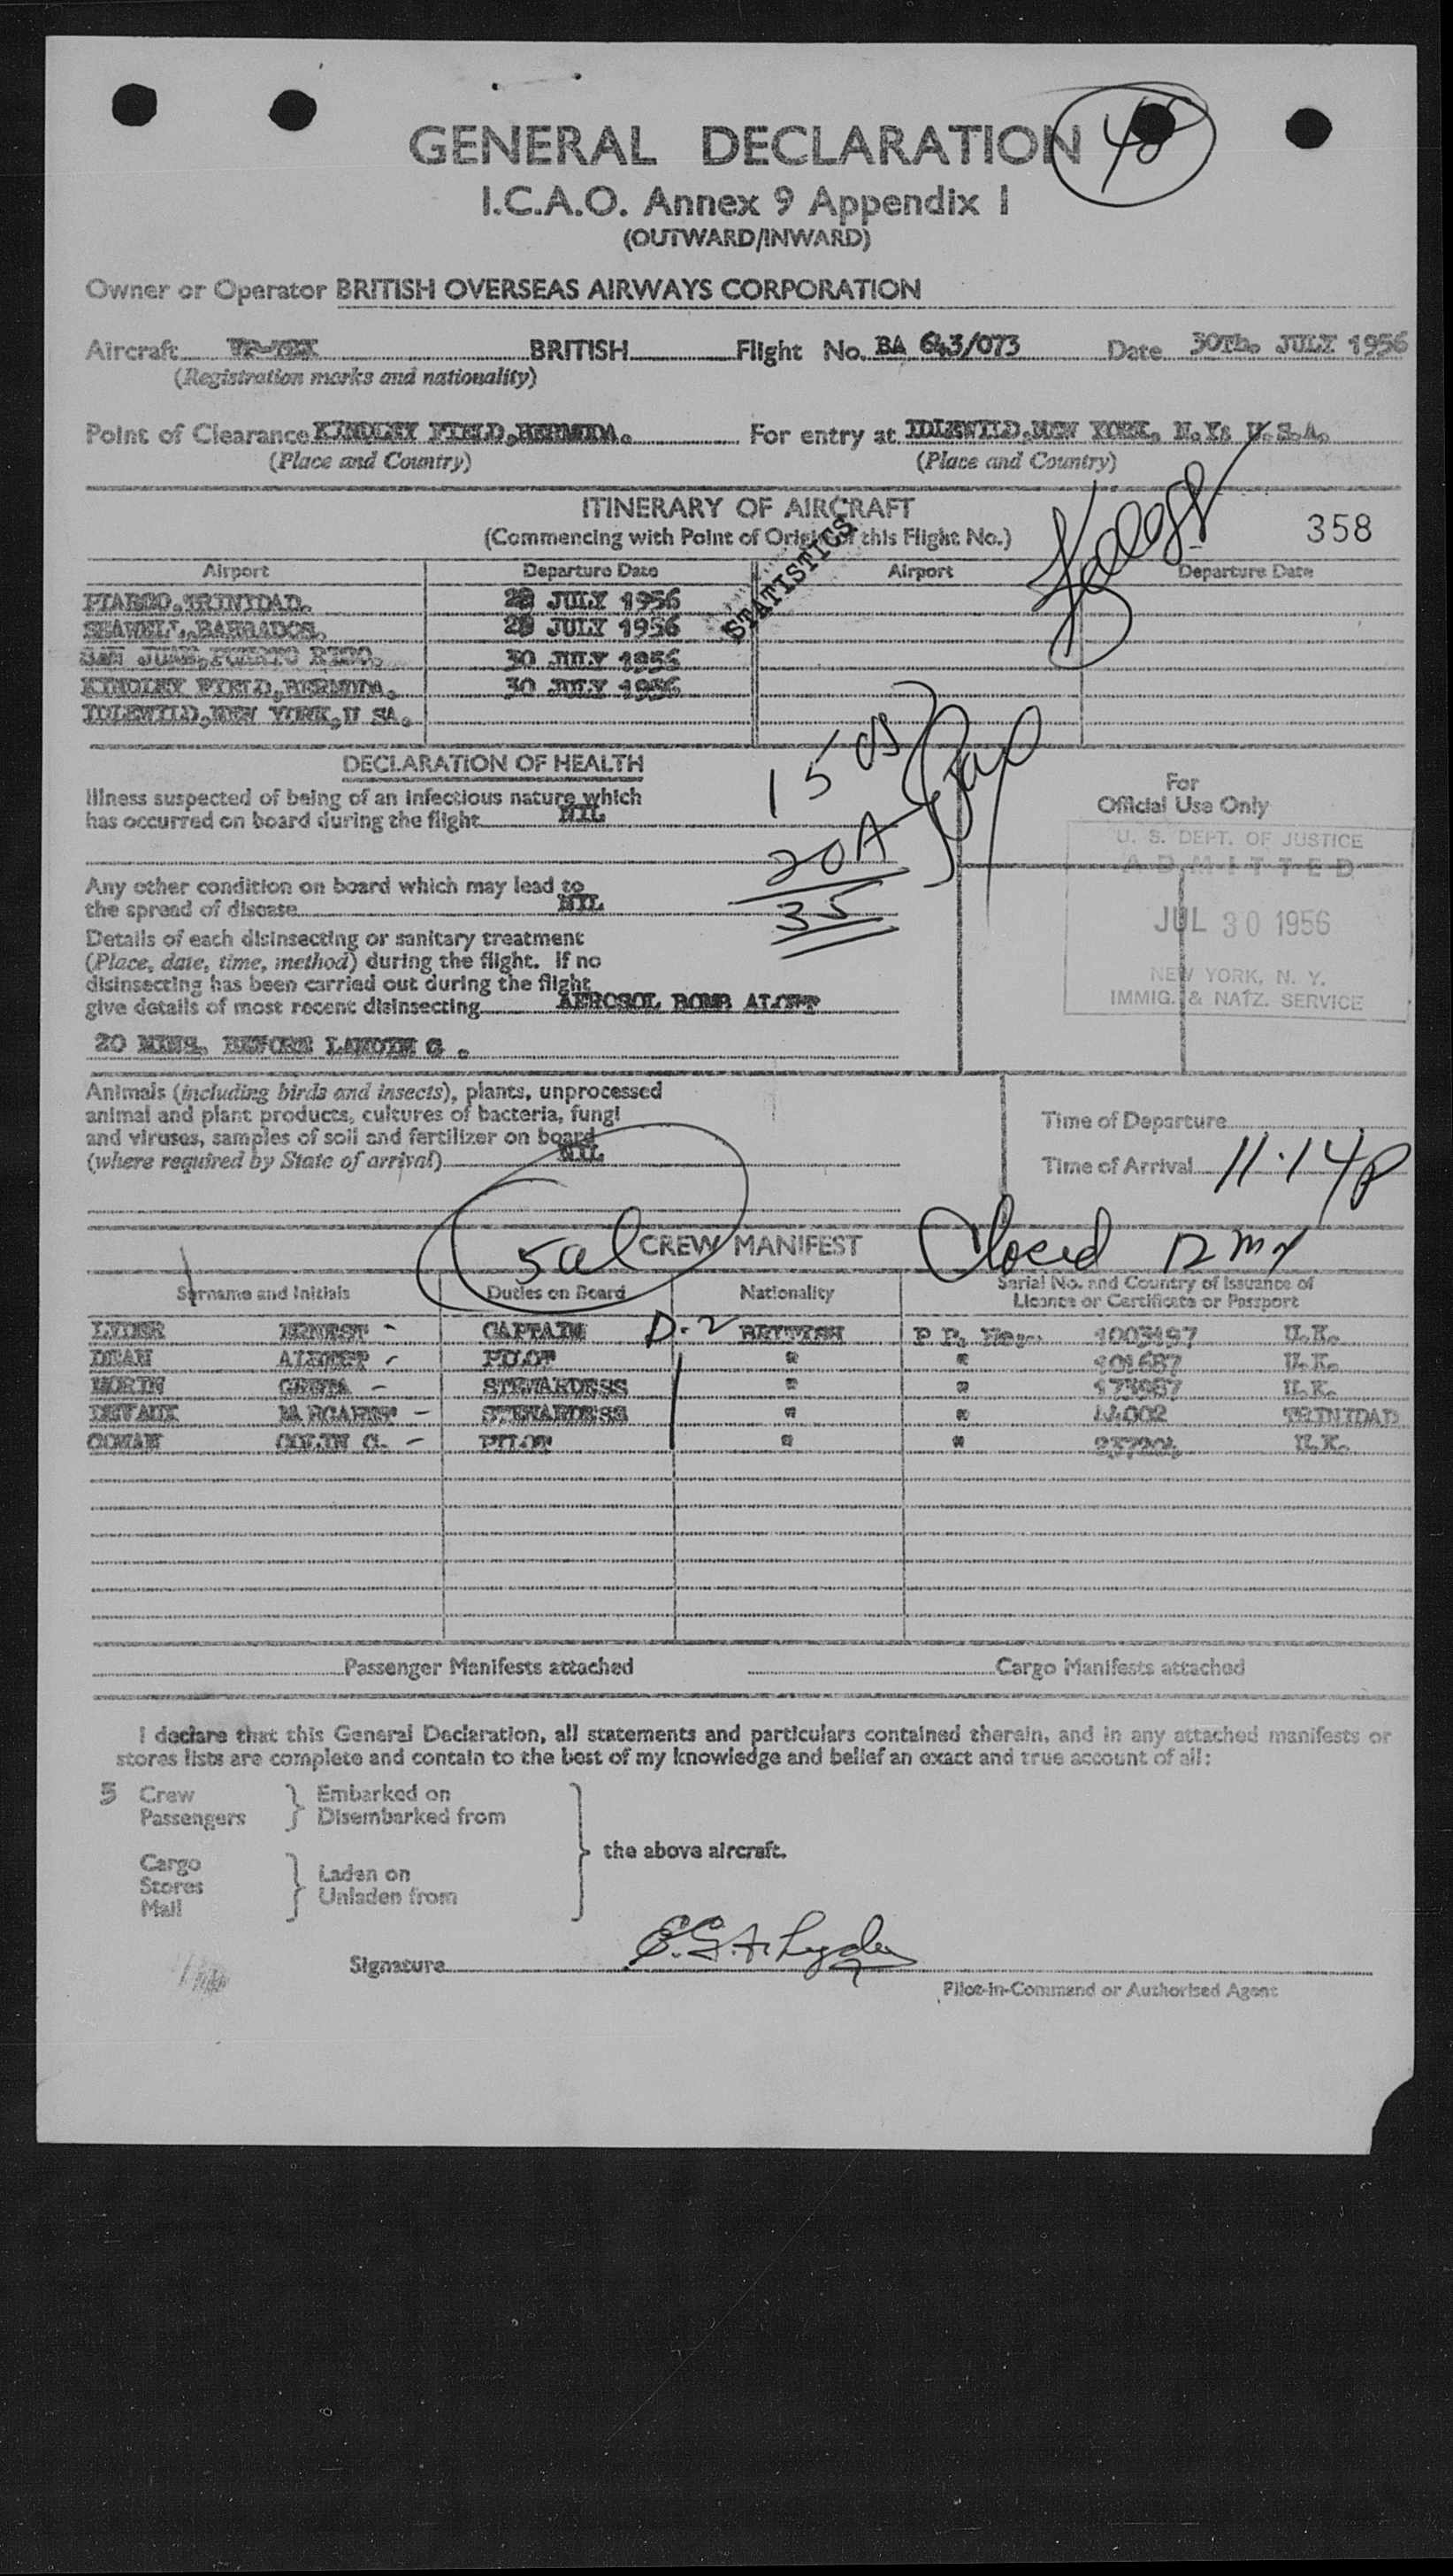 48
GENERAL DECLARATION
I.C.A.O. Annex 9 Appendix I
(OUTWARD/INWARD)
Owner or Operator BRITISH OVERSEAS AIRWAYS CORPORATION
Aircraft BRITISH Flight No. BA 643/073 Date 30Th. JULY 1956
(Registration marks and nationality)
Point of Clearance KINDLEY FIELD,BERMUDA. For entry at IDLEWILD,NEW YORK, N.Y. U.S.A.
(Place and Country) (Place and Country)
ITINERARY OF AIRCRAFT
(Commencing with Point of Origin of this Flight No.)
358
STATISTICS
Airport Departure Date Airport Departure Date
PIARCO,TRINIDAD. JULY 1956
SEAWELL,BARBADOS. JULY 1956
SAN JUAN,PUERTO RICO. 30 JULY 1956
KINDLEY FIELD,BERMUDA. 30 JULY 1956
IDLEWILD,NEW YORK,U SA.
DECLARATION OF HEALTH
15
20A
35
For
Official Use Only
Illness suspected of being of an infectious nature which
has occurred on board during the flight NIL
U. S. DEPT. OF JUSTICE
ADMITTED
JUL 30 1956
NEW YORK, N. Y.
IMMIG. & NATZ. SERVICE
Any other condition on board which may lead to
the spread of disease NIL
Details of each disinsecting or sanitary treatment
(Place, date, time, method) during the flight. If no
disinsecting has been carried out during the flight
give details of most recent disinsecting AEROSOL BOMB ALOFT
20 MINS. BEFORE LANDIN G .
Animals (including birds and insects), plants, unprocessed
animal and plant products, cultures of bacteria, fungi
and viruses, samples of soil and fertilizer on board
(where required by State of arrival) NIL
Time of Departure
Time of Arrival 11.14P
CREW MANIFEST
Closed
Surname and Initials Duties on Board Nationality Serial No. and Country of Issuance of
Licence or Certificate or Passport
LYDER ERNEST - CAPTAIN D-2 BRITISH P P. No. 1003197 U.K.
DEAN - PILOT " " 101687 U.K.
MORIN GRETA - STEWARDESS " " U.K.
DEVAUX MARGARET - STEWARDESS " " 44002 TRINIDAD
COLIN G. - PILOT " " U.K.
Passenger Manifests attached Cargo Manifests attached
I declare that this General Declaration, all statements and particulars contained therein, and in any attached manifests or
stores lists are complete and contain to the best of my knowledge and belief an exact and true account of all:
5 Crew Embarked on
Passengers Disembarked from
the above aircraft.
Cargo Laden on
Stores Unladen from
Mail
Signature E.G.A. Lyder
Pilot-in-Command or Authorised Agent